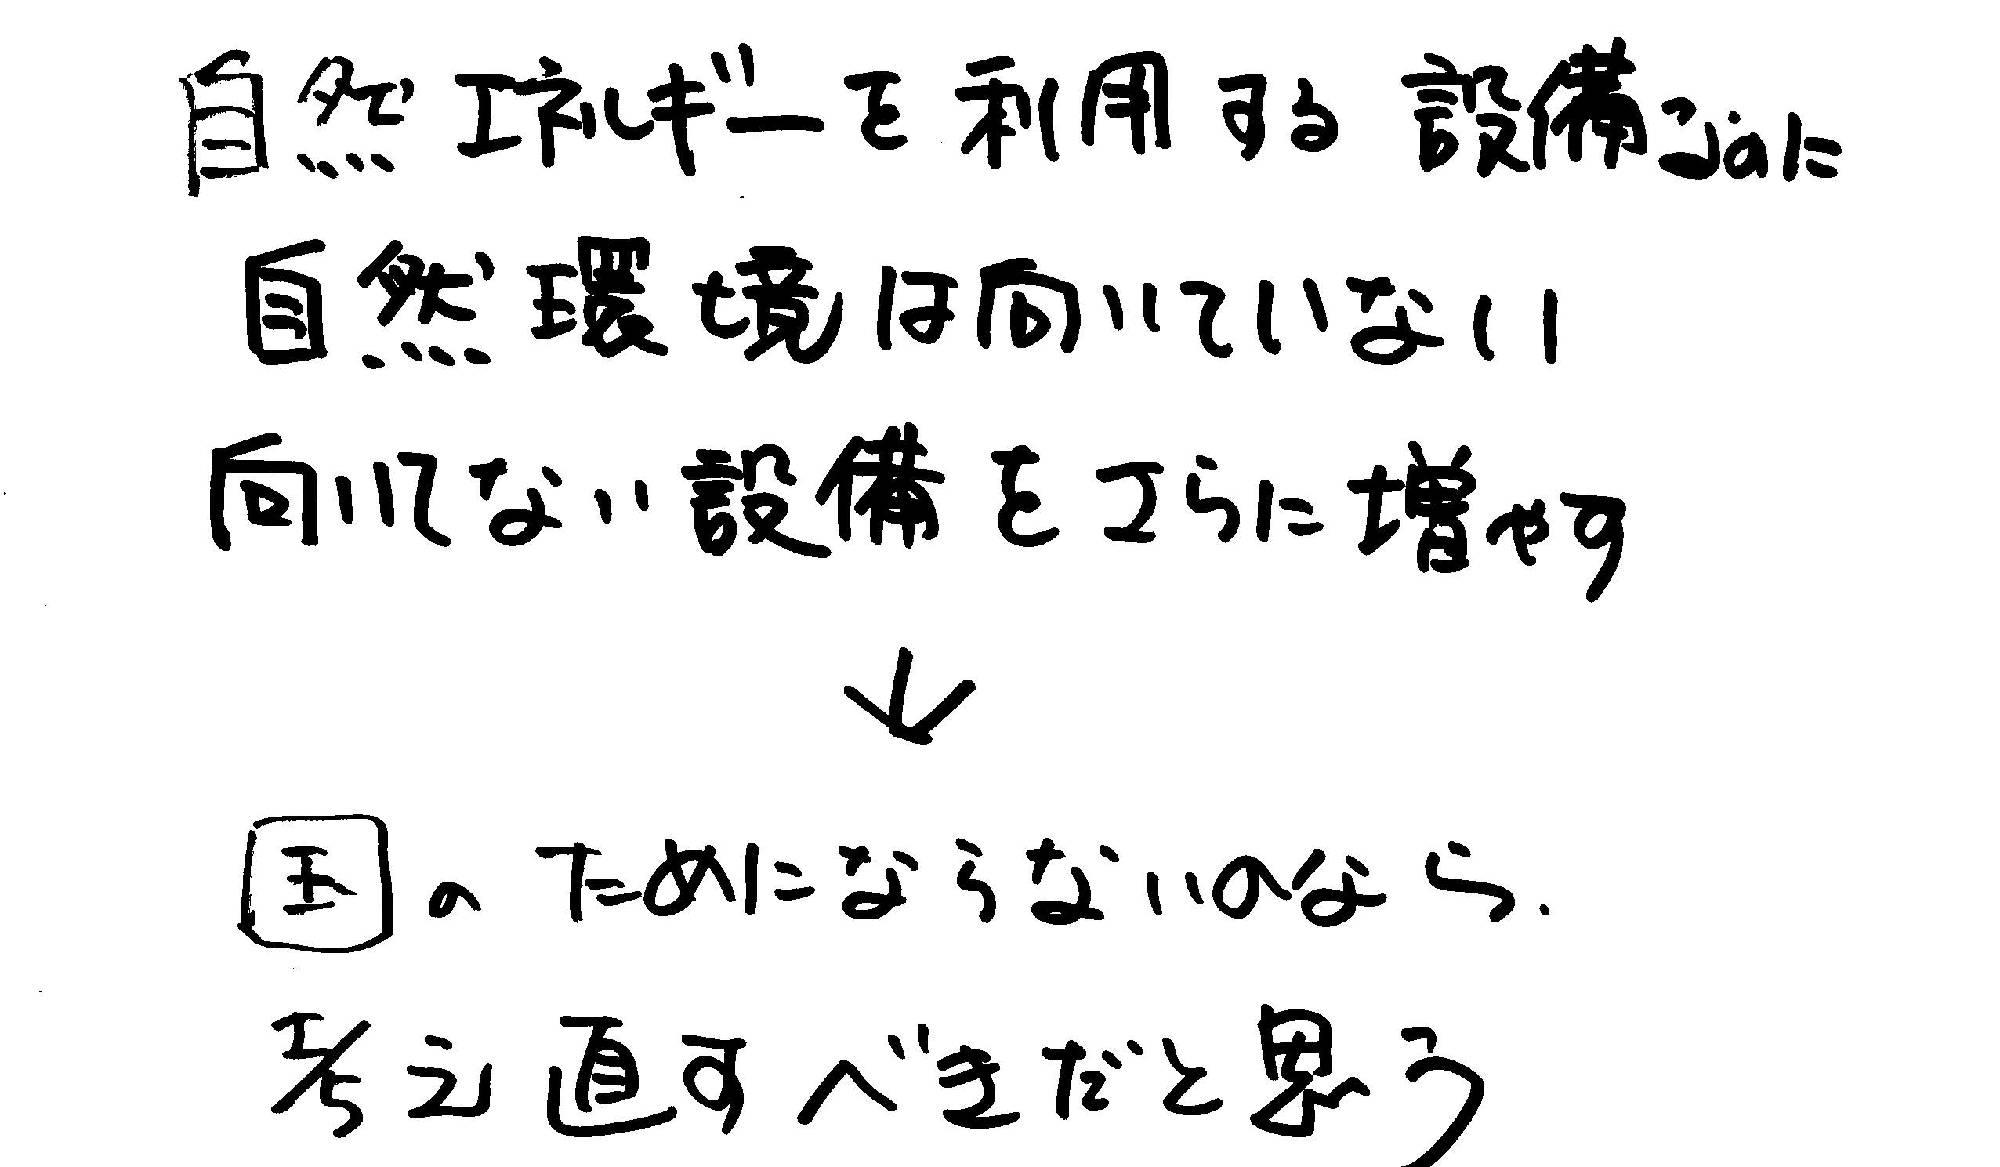 自然エネルギーを利用する設備なのに
自然環境は向いていない
向いてない設備をさらに増やす
↓
国のためにならないのなら、
考え直すべきだと思う